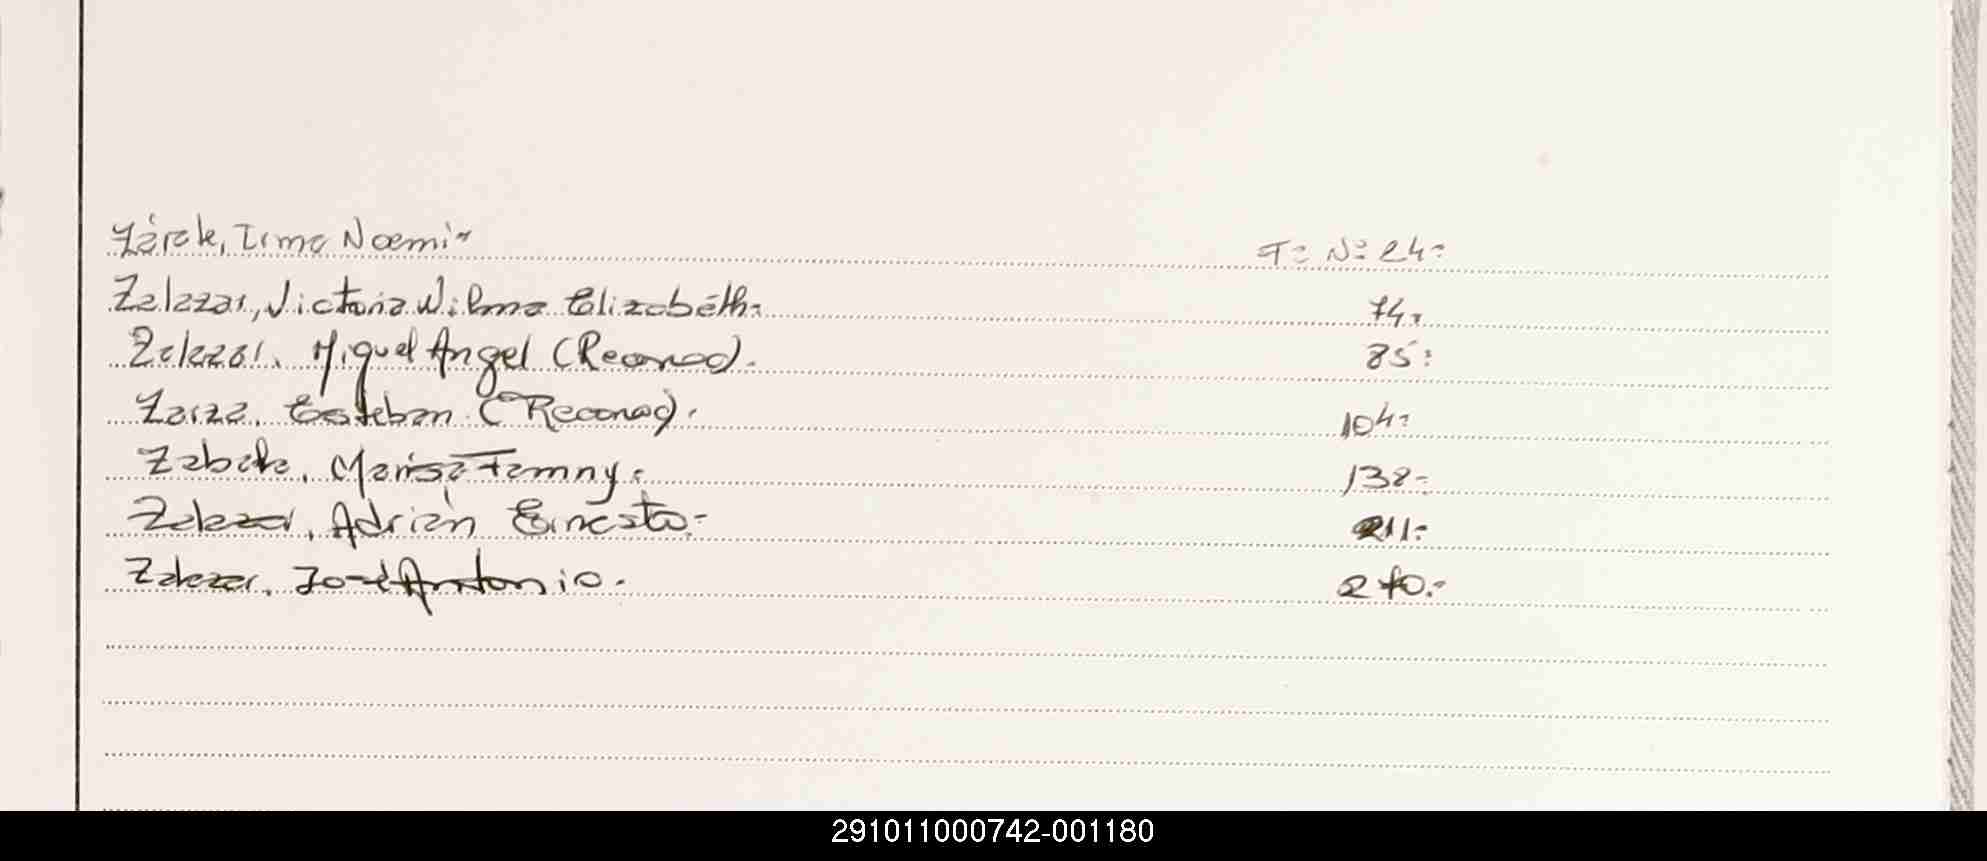 Zárate, Irma Noemi- Fº Nº 24-
Zalazar, Victoria Wilma Elizabéth- 74-
Zalazar, Miguel Angel (Reconoc). 85-
Zarza, Esteban (Reconoc). 104-
Marisa Fanny- 138-
Zalazar, Adrián Ernesto- 211-
Zalazar, José Antonio. 270.-
291011000742-001180